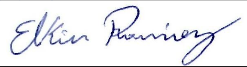 Elkin Ramirez